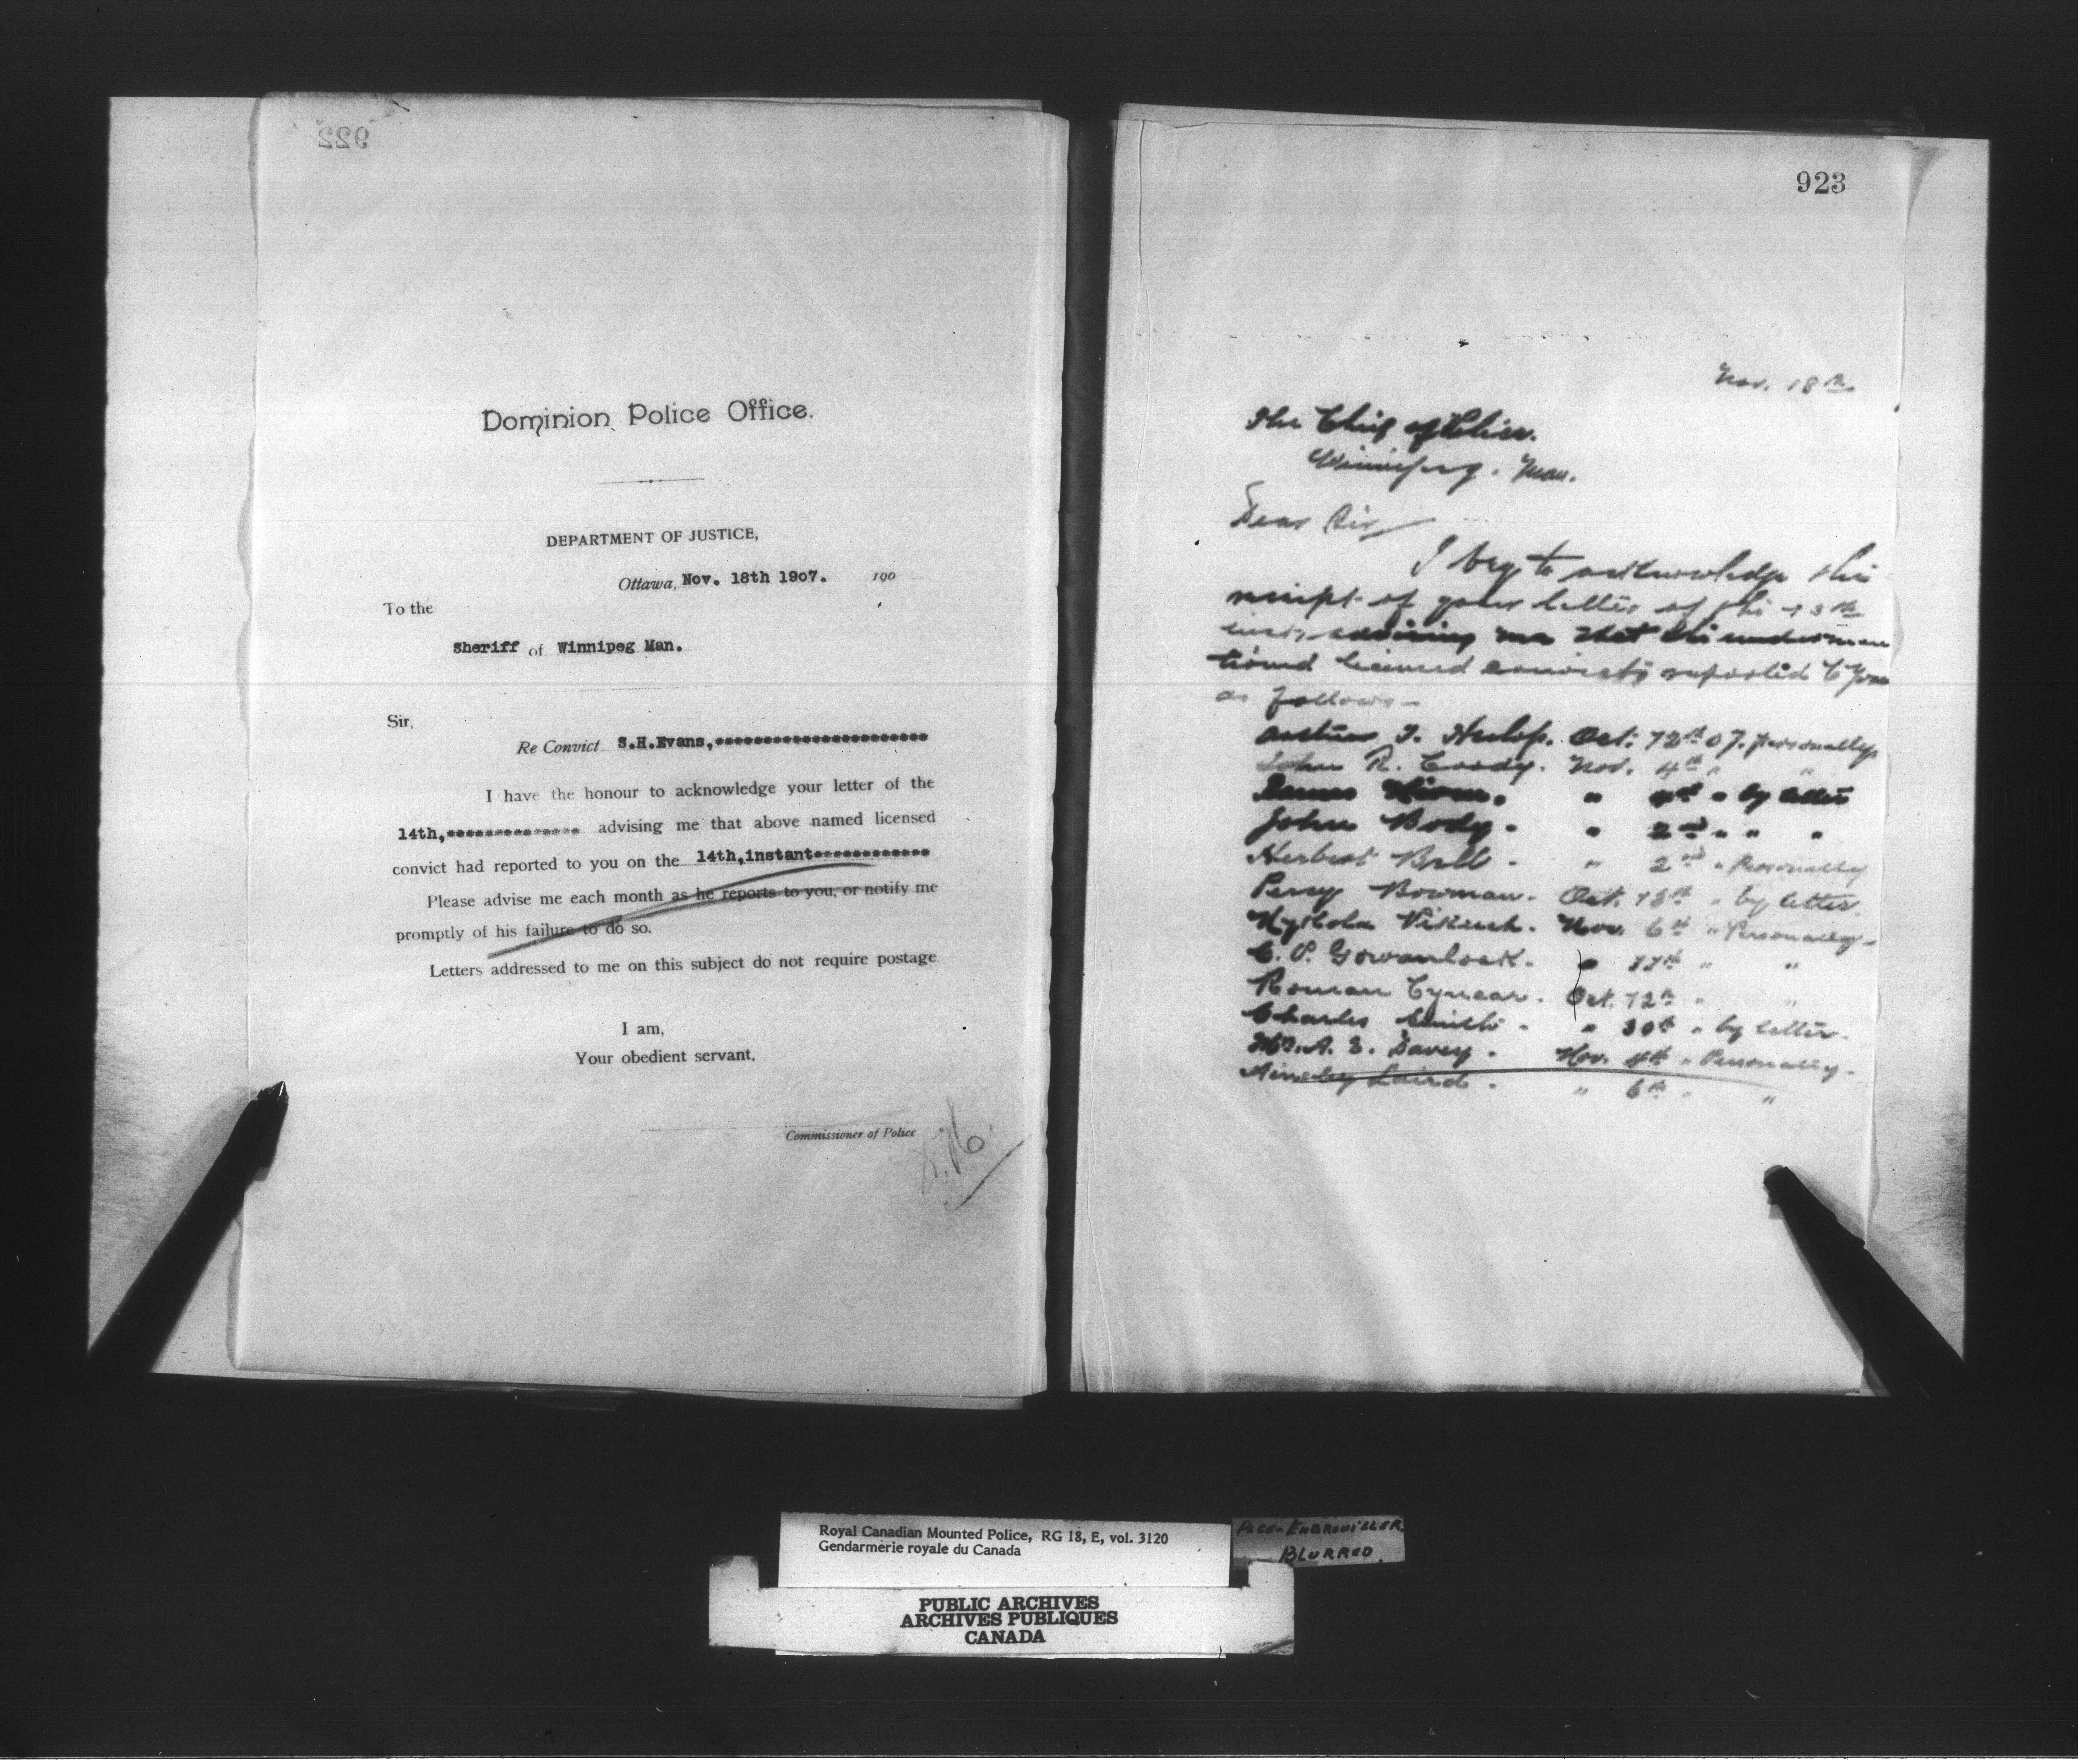 922
Dominion Police Office.
DEPARTMENT OF JUSTICE,
Ottawa, Nov. 18th 1907. 190
To the
Sheriff of Winnipeg Man.
Sir,
Re Convict S.H.Evans,**********************
I have the honour to acknowledge your letter of the
14th,************** advising me that above named licensed
convict had reported to you on the 14th,instant************
Please advise me each month as he reports to you, or notify me
promptly of his failure to do so.
Letters addressed to me on this subject do not require postage
I am,
Your obedient servant,
Commissioner of Police
923
Nov. 18th
The Chief of Police.
Winnipeg. Man.
Dear Sir
I beg to acknowledge the
receipt of your letter of the 13th
inst, advising me that the undermen
tioned licensed convicts reported to you
as follows -
J. Oct. 12th 07. personally
John R. Nov. 4th " "
James " 4th " by letter
John Body. " 2nd " " "
Herbert Bell - " 2nd " Personally
Percy Bowman. Oct. 18th " by letter.
Nov. 6th " Personally -
C. P. Gowanlock. " 11th " "
Roman Oct. 12th " "
Charles Smith - " 30th " by letter.
A. E. Davey. Nov. 4th " Personally.
Laird. " 6th " "
Royal Canadian Mounted Police, RG 18, E, vol. 3120
Gendarmerie royale du Canada
PAGE-EMBROUILLER.
BLURRED.
PUBLIC ARCHIVES
ARCHIVES PUBLIQUES
CANADA